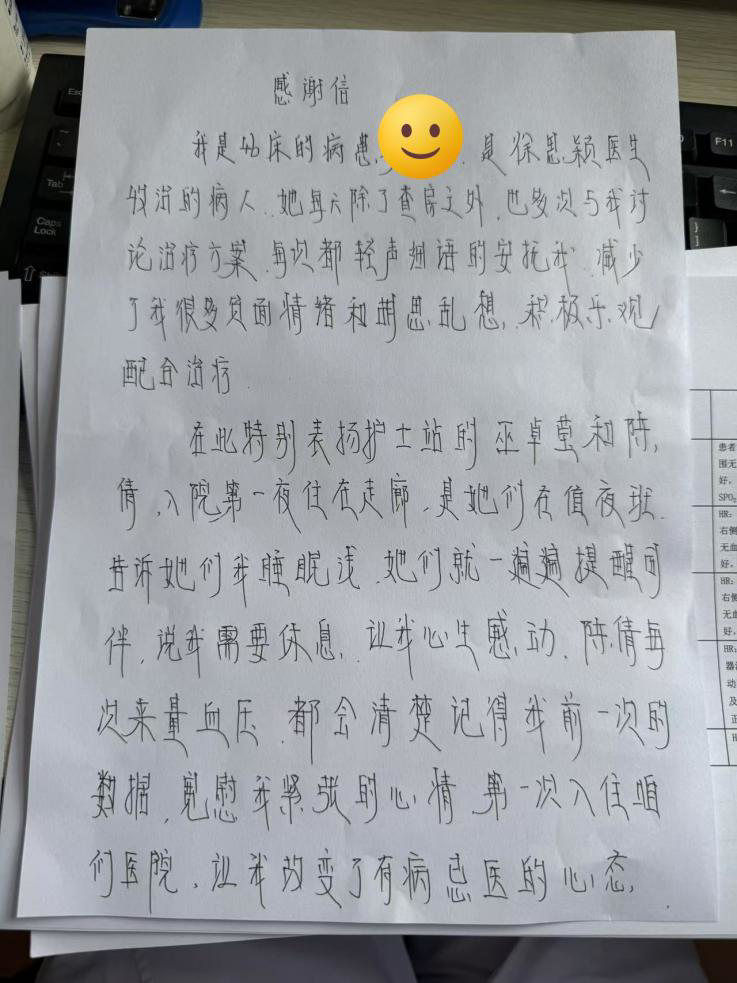 感谢信
我是 床的病患, 是徐思颖医生
收治的病人.她每天除了查房之外,也多次与我讨
论治疗方案,每次都轻声细语的安抚我,减少
了我很多负面情绪和胡思乱想,积极乐观
配合治疗.
在此特别表扬护士站的巫卓莹和陈
倩,入院第一夜住在走廊,是她们在值夜班.
告诉她们我睡眠浅,她们就一遍遍提醒同
伴,说我需要休息,让我心生感动.陈倩每
次来量血压,都会清楚记得我前一次的
数据,宽慰我紧张的心情.第一次入住咱
们医院,让我改变了有病忌医的心态,
Esc
Tab
Caps
Lock
F11
患者
围无
好,
SPO₂
HR:
右侧
无血
好,
HR:
右侧
无血
好,
HR:
器
动
及
正
H